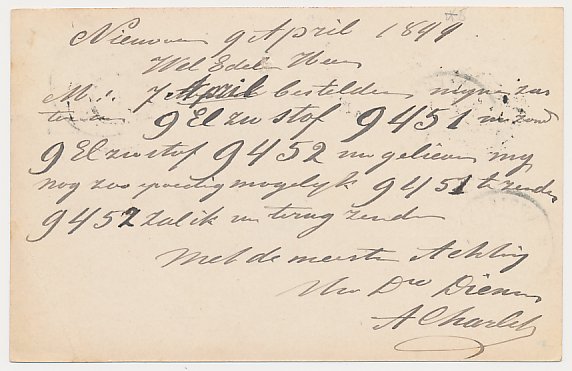 Nieuwveen 9 April 1899
Wel Edele Heer
M.! 7 April bestelden mijne zus
9 El zw stof 9451 u zond
9 El zw stof 9452 nu gelieve my
nog zoo spoedig mogelyk 9451 te zenden
9452 zal ik u terug zenden
Met de meeste Achting
Uw Dwe Dienr
A Charlet